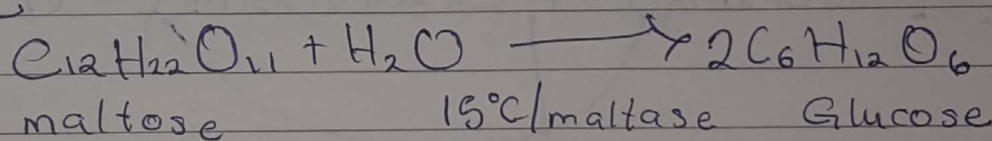 C₁₂H₂₂O₁₁ + H₂O ⟶ 2C₆H₁₂O₆
maltose 15°C/maltase Glucose